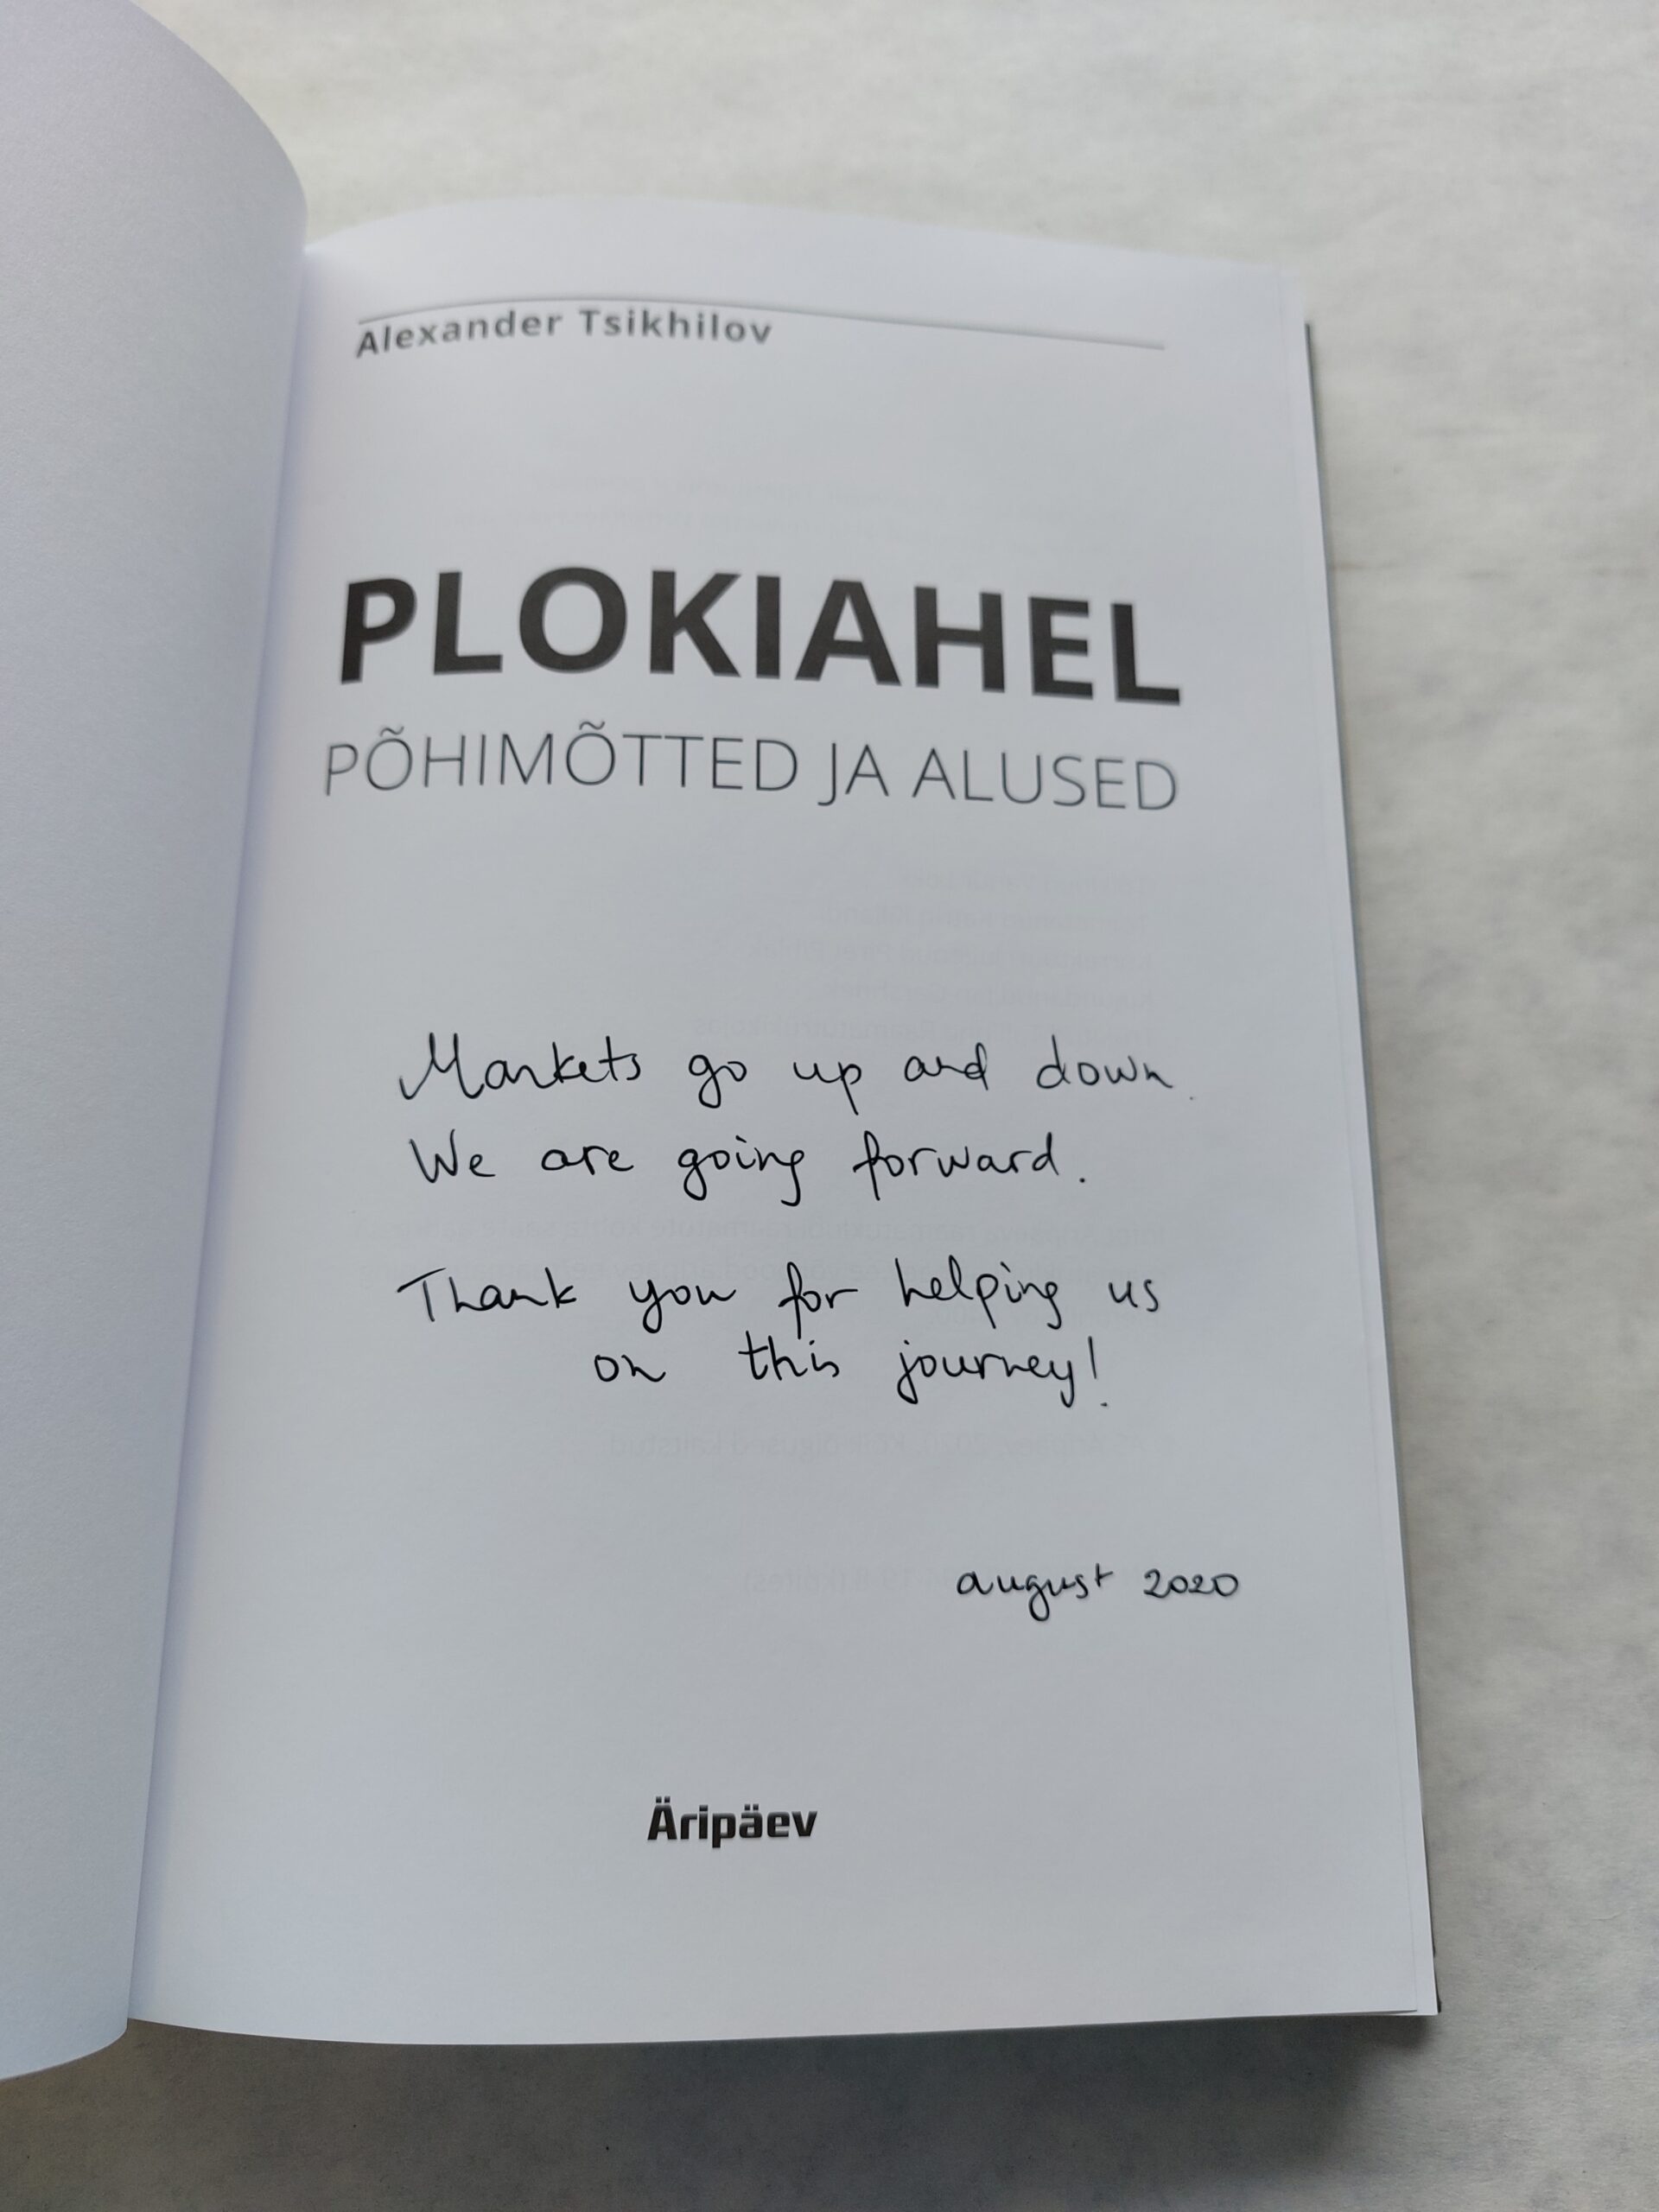 Alexander Tsikhilov
PLOKIAHEL
PÕHIMÕTTED JA ALUSED
Markets go up and down.
We are going forward.
Thank you for helping us
on this journey!
august 2020
Äripäev